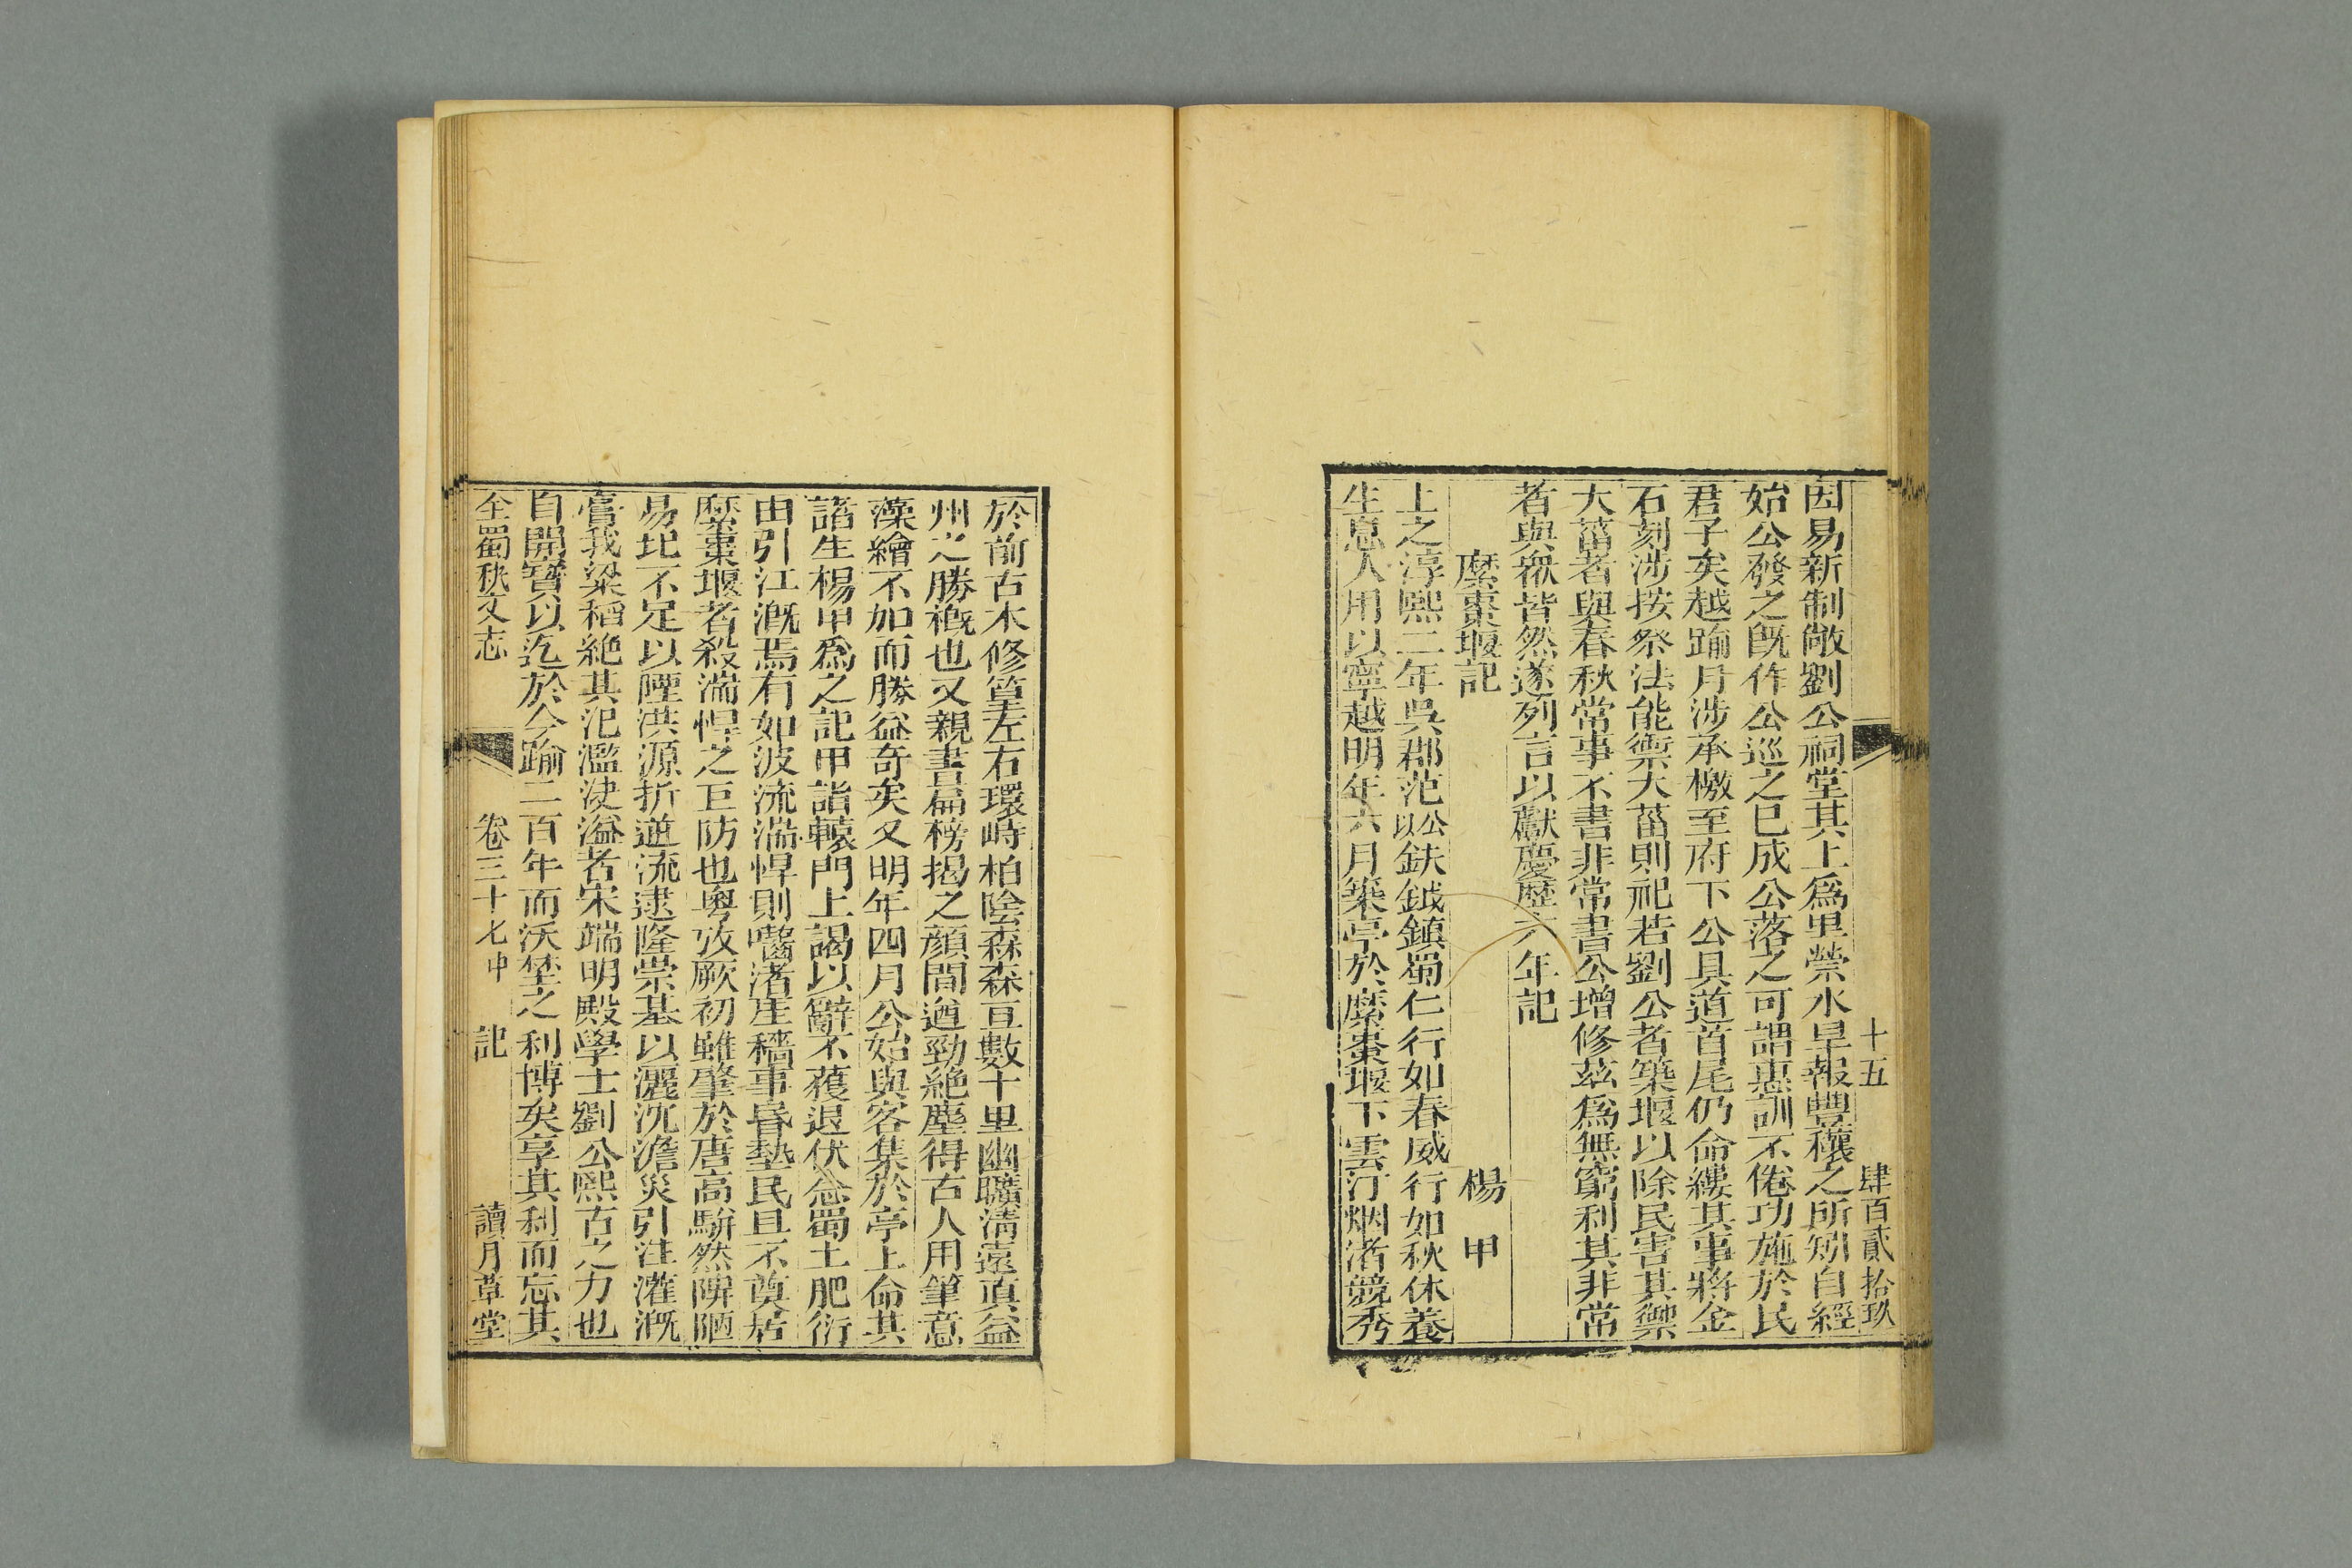 十五　肆百貳拾玖
因易新制敞劉公祠堂其上爲里禜水旱報豐穰之所矧自經
始公發之旣作公巡之已成公落之可謂惠訓不倦功施於民
君子矣越踰月涉承檄至府下公具道首尾仍命縷其事將金
石刻涉按祭法能禦大菑則祀若劉公者築堰以除民害其禦
大菑者與春秋常事不書非常書公增修茲爲無窮利其非常
者與衆皆然遂列言以獻慶歷六年記
糜棗堰記　楊甲
上之淳熙二年吳郡范公以鈇鉞鎮蜀仁行如春威行如秋休養
生息人用以寧越明年六月築亭於糜棗堰下雲汀烟渚競秀
於前古木修篁左右環峙柏陰森森亘數十里幽曠淸遠眞益
州之勝槪也又親書扁榜揭之顔間遒勁絶塵得古人用筆意
藻繪不加而勝益奇矣又明年四月公始與客集於亭上命其
諸生楊甲爲之記甲詣轅門上謁以辭不蒦退伏念蜀土肥衍
由引江漑焉有如波流湍悍則囓渚崖穡事昬墊民且不奠居
糜棗堰者殺湍悍之巨防也粤攷厥初雖肇於唐高騈然陴陋
易圮不足以陻洪源折遒流逮隆崇基以灑沉澹災引注灌漑
膏我粱稻絶其汜濫泆溢者宋端明殿學士劉公熙古之力也
自開寶以迄於今踰二百年而沃埜之利博矣享其利而忘其
全蜀秇文志　卷三十七中　記　讀月草堂